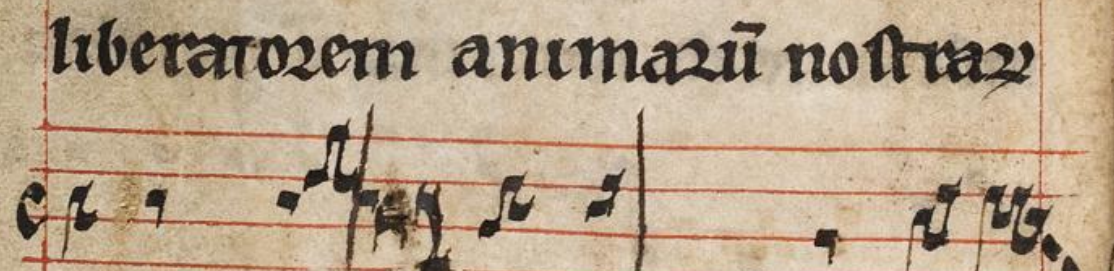 liberatorem animarū nostraꝝ